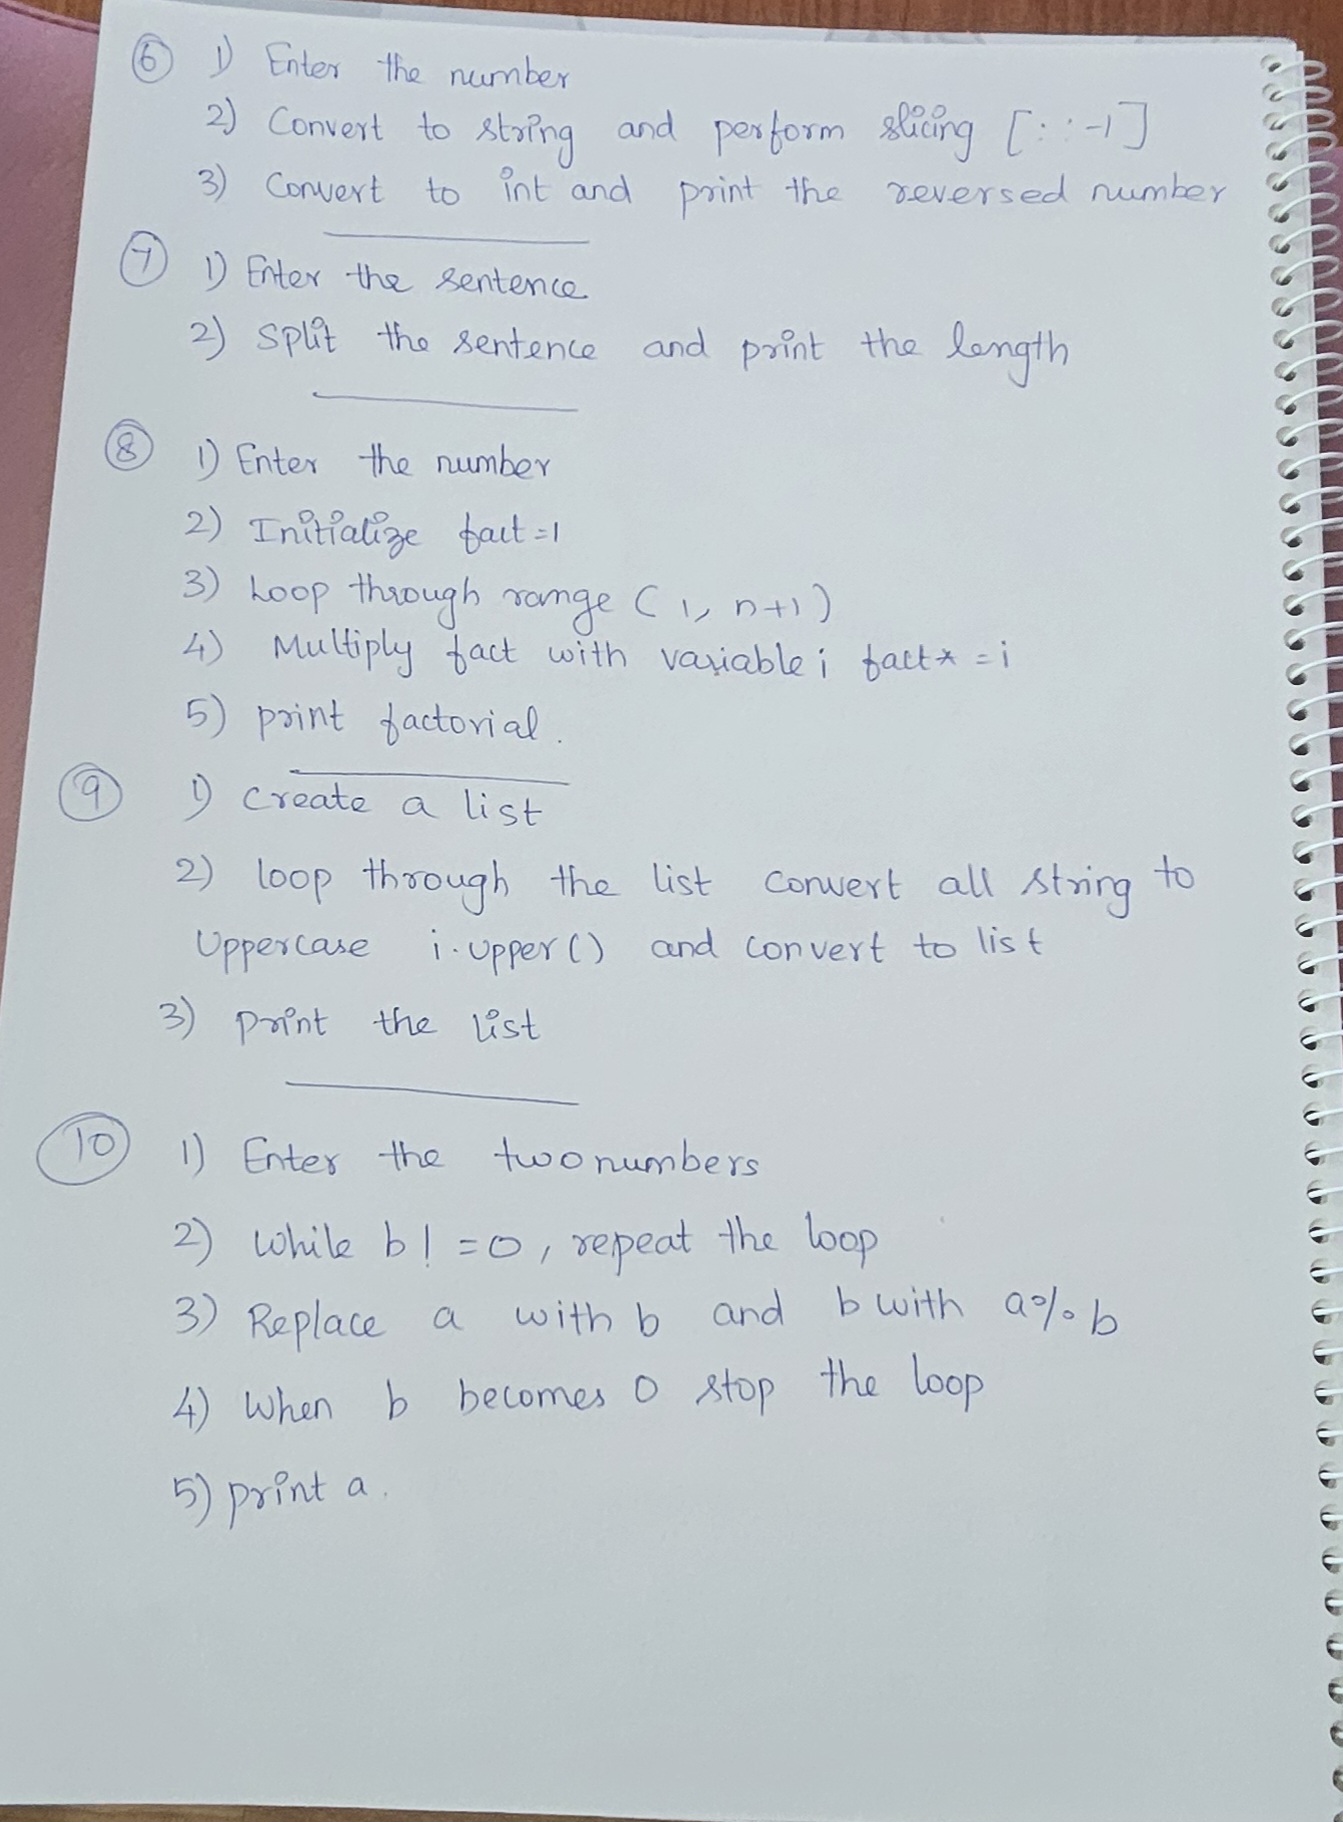 6 1) Enter the number
2) Convert to string and perform slicing [::-1]
3) Convert to int and print the reversed number
7 1) Enter the sentence
2) Split the sentence and print the length
8 1) Enter the number
2) Initialize fact=1
3) Loop through range (1, n+1)
4) Multiply fact with variable i fact*=i
5) print factorial.
9 1) Create a list
2) loop through the list convert all string to
Uppercase i.upper() and convert to list
3) print the list
10 1) Enter the two numbers
2) While b!=0, repeat the loop
3) Replace a with b and b with a%b
4) When b becomes 0 stop the loop
5) print a.